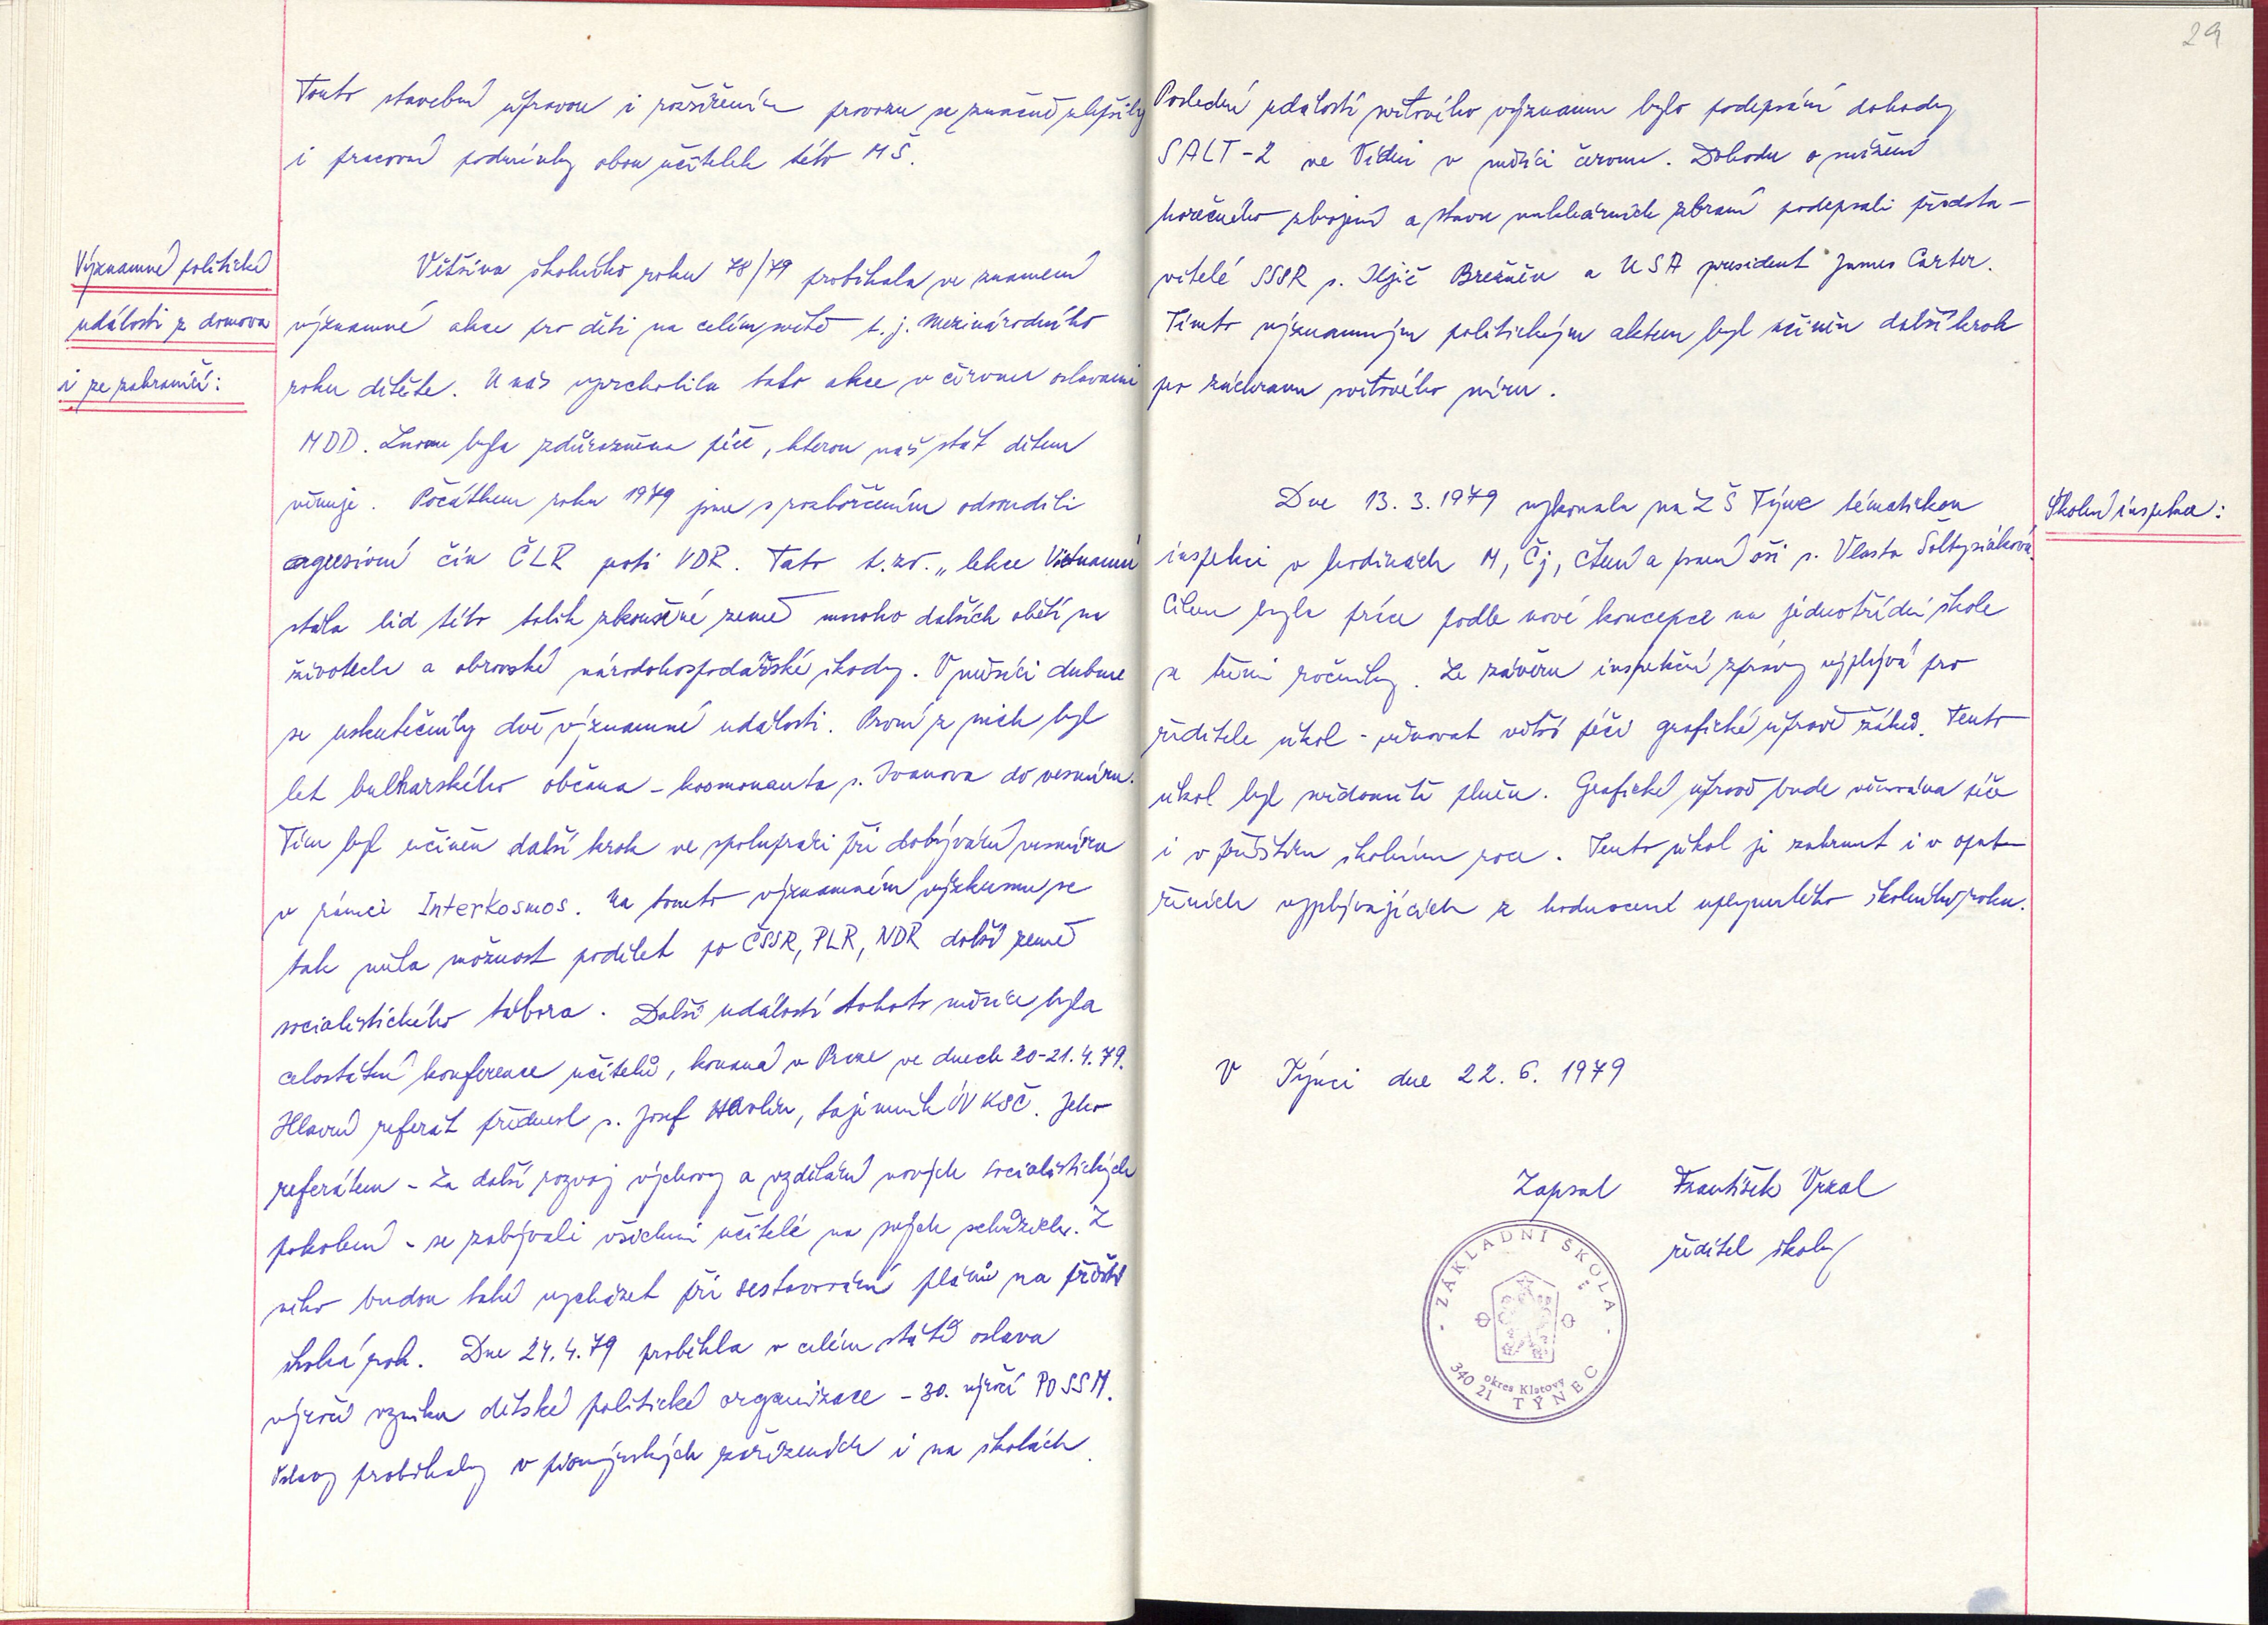 Touto stavební úpravou i rozšířením provozu se značně zlepšily
i pracovní podmínky obou učitelek této MŠ.
Významné politické
události z domova
i ze zahraničí:
Většina školního roku 78/79 probíhala ve znamení
významné akce pro děti na celém světě t. j. Mezinárodního
roku dítěte. U nás vyvrcholila tato akce v červnu oslavami
MDD. Znovu byla zdůrazněna péče, kterou náš stát dětem
věnuje. Počátkem roku 1979 jsme s rozhořčením odsoudili
agresivní čin ČLR proti VDR. Tato t. zv. „lekce Vietnamu
stála lid této tolik zkoušené země mnoho dalších obětí na
životech a obrovské národohospodářské škody. V měsíci dubnu
se uskutečnily dvě významné události. První z nich byl
let bulharského občana - kosmonauta s. Ivanova do vesmíru.
Tím byl učiněn další krok ve spolupráci při dobývání vesmíru
v rámci Interkosmos. Na tomto významném výzkumu se
tak měla možnost podílet po ČSSR, PLR, NDR další země
socialistického tábora. Další událostí tohoto měsíce byla
celostátní konference učitelů, konaná v Praze ve dnech 20-21.4.79.
Hlavní referát přednesl s. Josef Havlín, tajemník ÚV KSČ. Jeho
referátem - Za další rozvoj výchovy a vzdělání nových socialistických
pokolení - se zabývali všichni učitelé na svých schůzích. Z
něho budou také vycházet při sestavování plánů na příští
školní rok. Dne 24.4.79 proběhla v celém státě oslava
výročí vzniku dětské politické organizace - 30. výročí PO SSM.
Oslavy probíhaly v pionýrských zařízeních i na školách.
29
Poslední událostí světového významu bylo podepsání dohody
SALT-2 ve Vídni v měsíci červnu. Dohodu o snížení
horečného zbrojení a stavu nukleárních zbraní podepsali předsta-
vitelé SSSR s. Iljič Brežněv a USA president James Carter.
Tímto významným politickým aktem byl učiněn další krok
po záchranu světového míru.
Školní inspekce:
Dne 13. 3. 1979 vykonala na ZŠ Týnec tématickou
inspekci v hodinách M, Čj, čtení a psaní oši s. Vlasta Šoltysiaková.
Cílem byla práce podle nové koncepce na jednotřídní škole
se třemi ročníky. Ze závěru inspekční zprávy vyplývá pro
ředitele úkol - věnovat větší péči grafické úpravě žáků. Tento
úkol byl svědomitě plněn. Grafické úpravě bude věnována péče
i v příštím školním roce. Tento úkol je zahrnut i v opat-
řeních vyplývajících z hodnocení uplynulého školního roku.
V Týnci dne 22. 6. 1979
Zapsal František Vrzal
ředitel školy
- ZÁKLADNÍ ŠKOLA -
okres Klatovy
340 21 TÝNEC